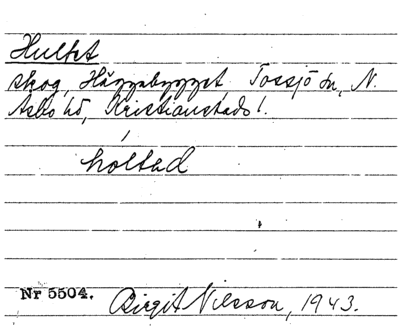 Hultet
skog, Häggabygget, Tossjö sn, N.
Åsbo hd, Kristianstads l.
holtad
Nr 5504. Birgit Nilsson, 1943.